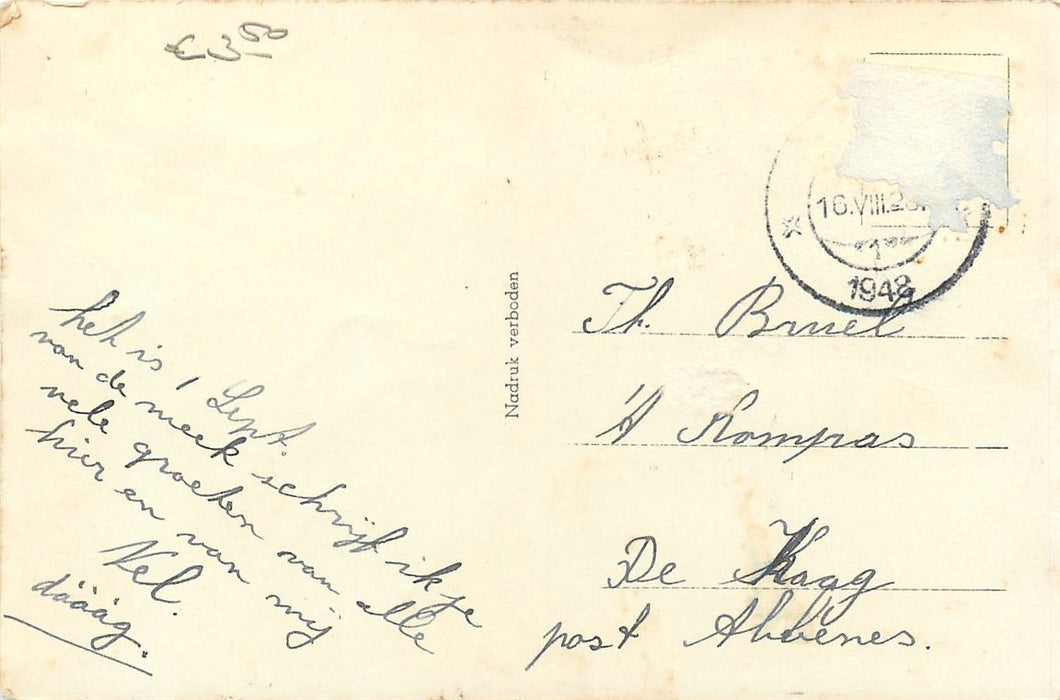 £ 3 50
16.VIII.2
1
1948
het is 1 Sept.
van de week schrijf ik je
vele groeten van alle
hier en van mij
Nel.
däääg.
Nadruk verboden
Th. Bruel
't Kompas
De Kaag
post Abbenes.